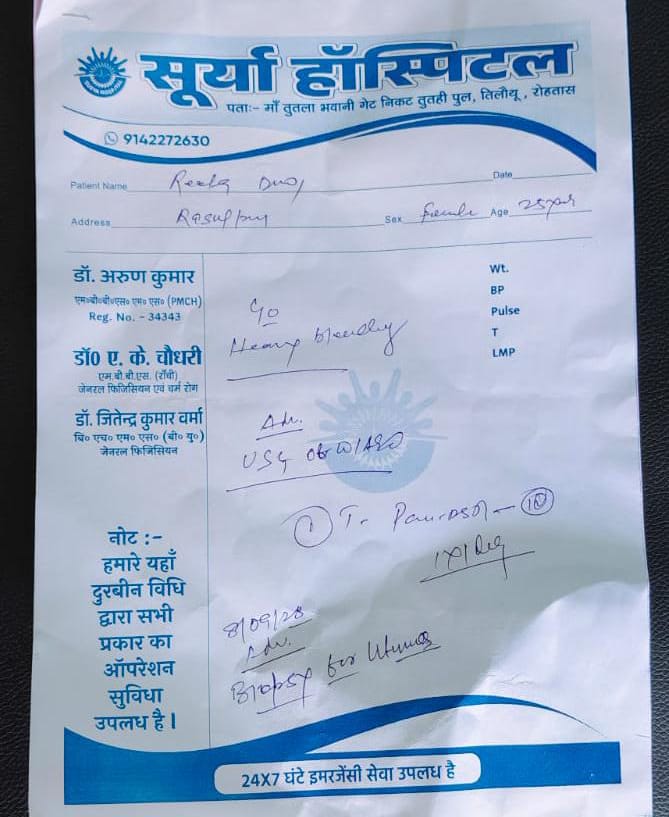 सूर्या हॉस्पिटल
पताः- माँ तुतला भवानी गेट निकट तुतही पुल, तिलौथू, रोहतास
9142272630
Patient Name Reeta Devi
Date
Address Rasulpur
Sex Female Age 25 year
डॉ. अरुण कुमार
एम०बी०बी०एस० एम० एस० (PMCH)
Reg. No. - 34343
डॉ० ए. के. चौधरी
एम.बी.बी.एस. (राँची)
जेनरल फिजिसियन एवं चर्म रोग
डॉ. जितेन्द्र कुमार वर्मा
बि० एच० एम० एस० (बी० यू०)
जेनरल फिजिसियन
नोट :-
हमारे यहाँ
दुरबीन विधि
द्वारा सभी
प्रकार का
ऑपरेशन
सुविधा
उपलध है।
Wt.
BP
Pulse
T
LMP
C/o
Heavy bleeding
Adv.
USG of W/ABD
① T-
Adv.
Biopsy for Uterus
24X7 घंटे इमरजेंसी सेवा उपलध है